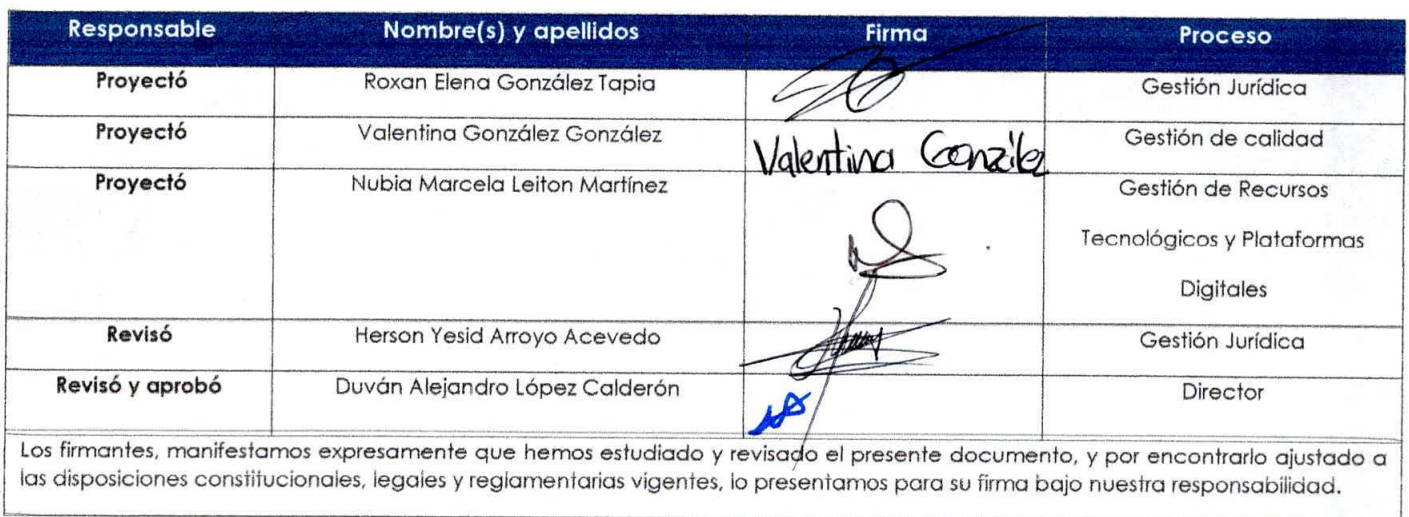 Responsable Nombre(s) y apellidos Firma Proceso
Proyectó Roxan Elena González Tapia Gestión Jurídica
Proyectó Valentina González González Valentina González Gestión de calidad
Proyectó Nubia Marcela Leiton Martínez Gestión de Recursos
Tecnológicos y Plataformas
Digitales
Revisó Herson Yesid Arroyo Acevedo Gestión Jurídica
Revisó y aprobó Duván Alejandro López Calderón Director
Los firmantes, manifestamos expresamente que hemos estudiado y revisado el presente documento, y por encontrarlo ajustado a
las disposiciones constitucionales, legales y reglamentarias vigentes, lo presentamos para su firma bajo nuestra responsabilidad.